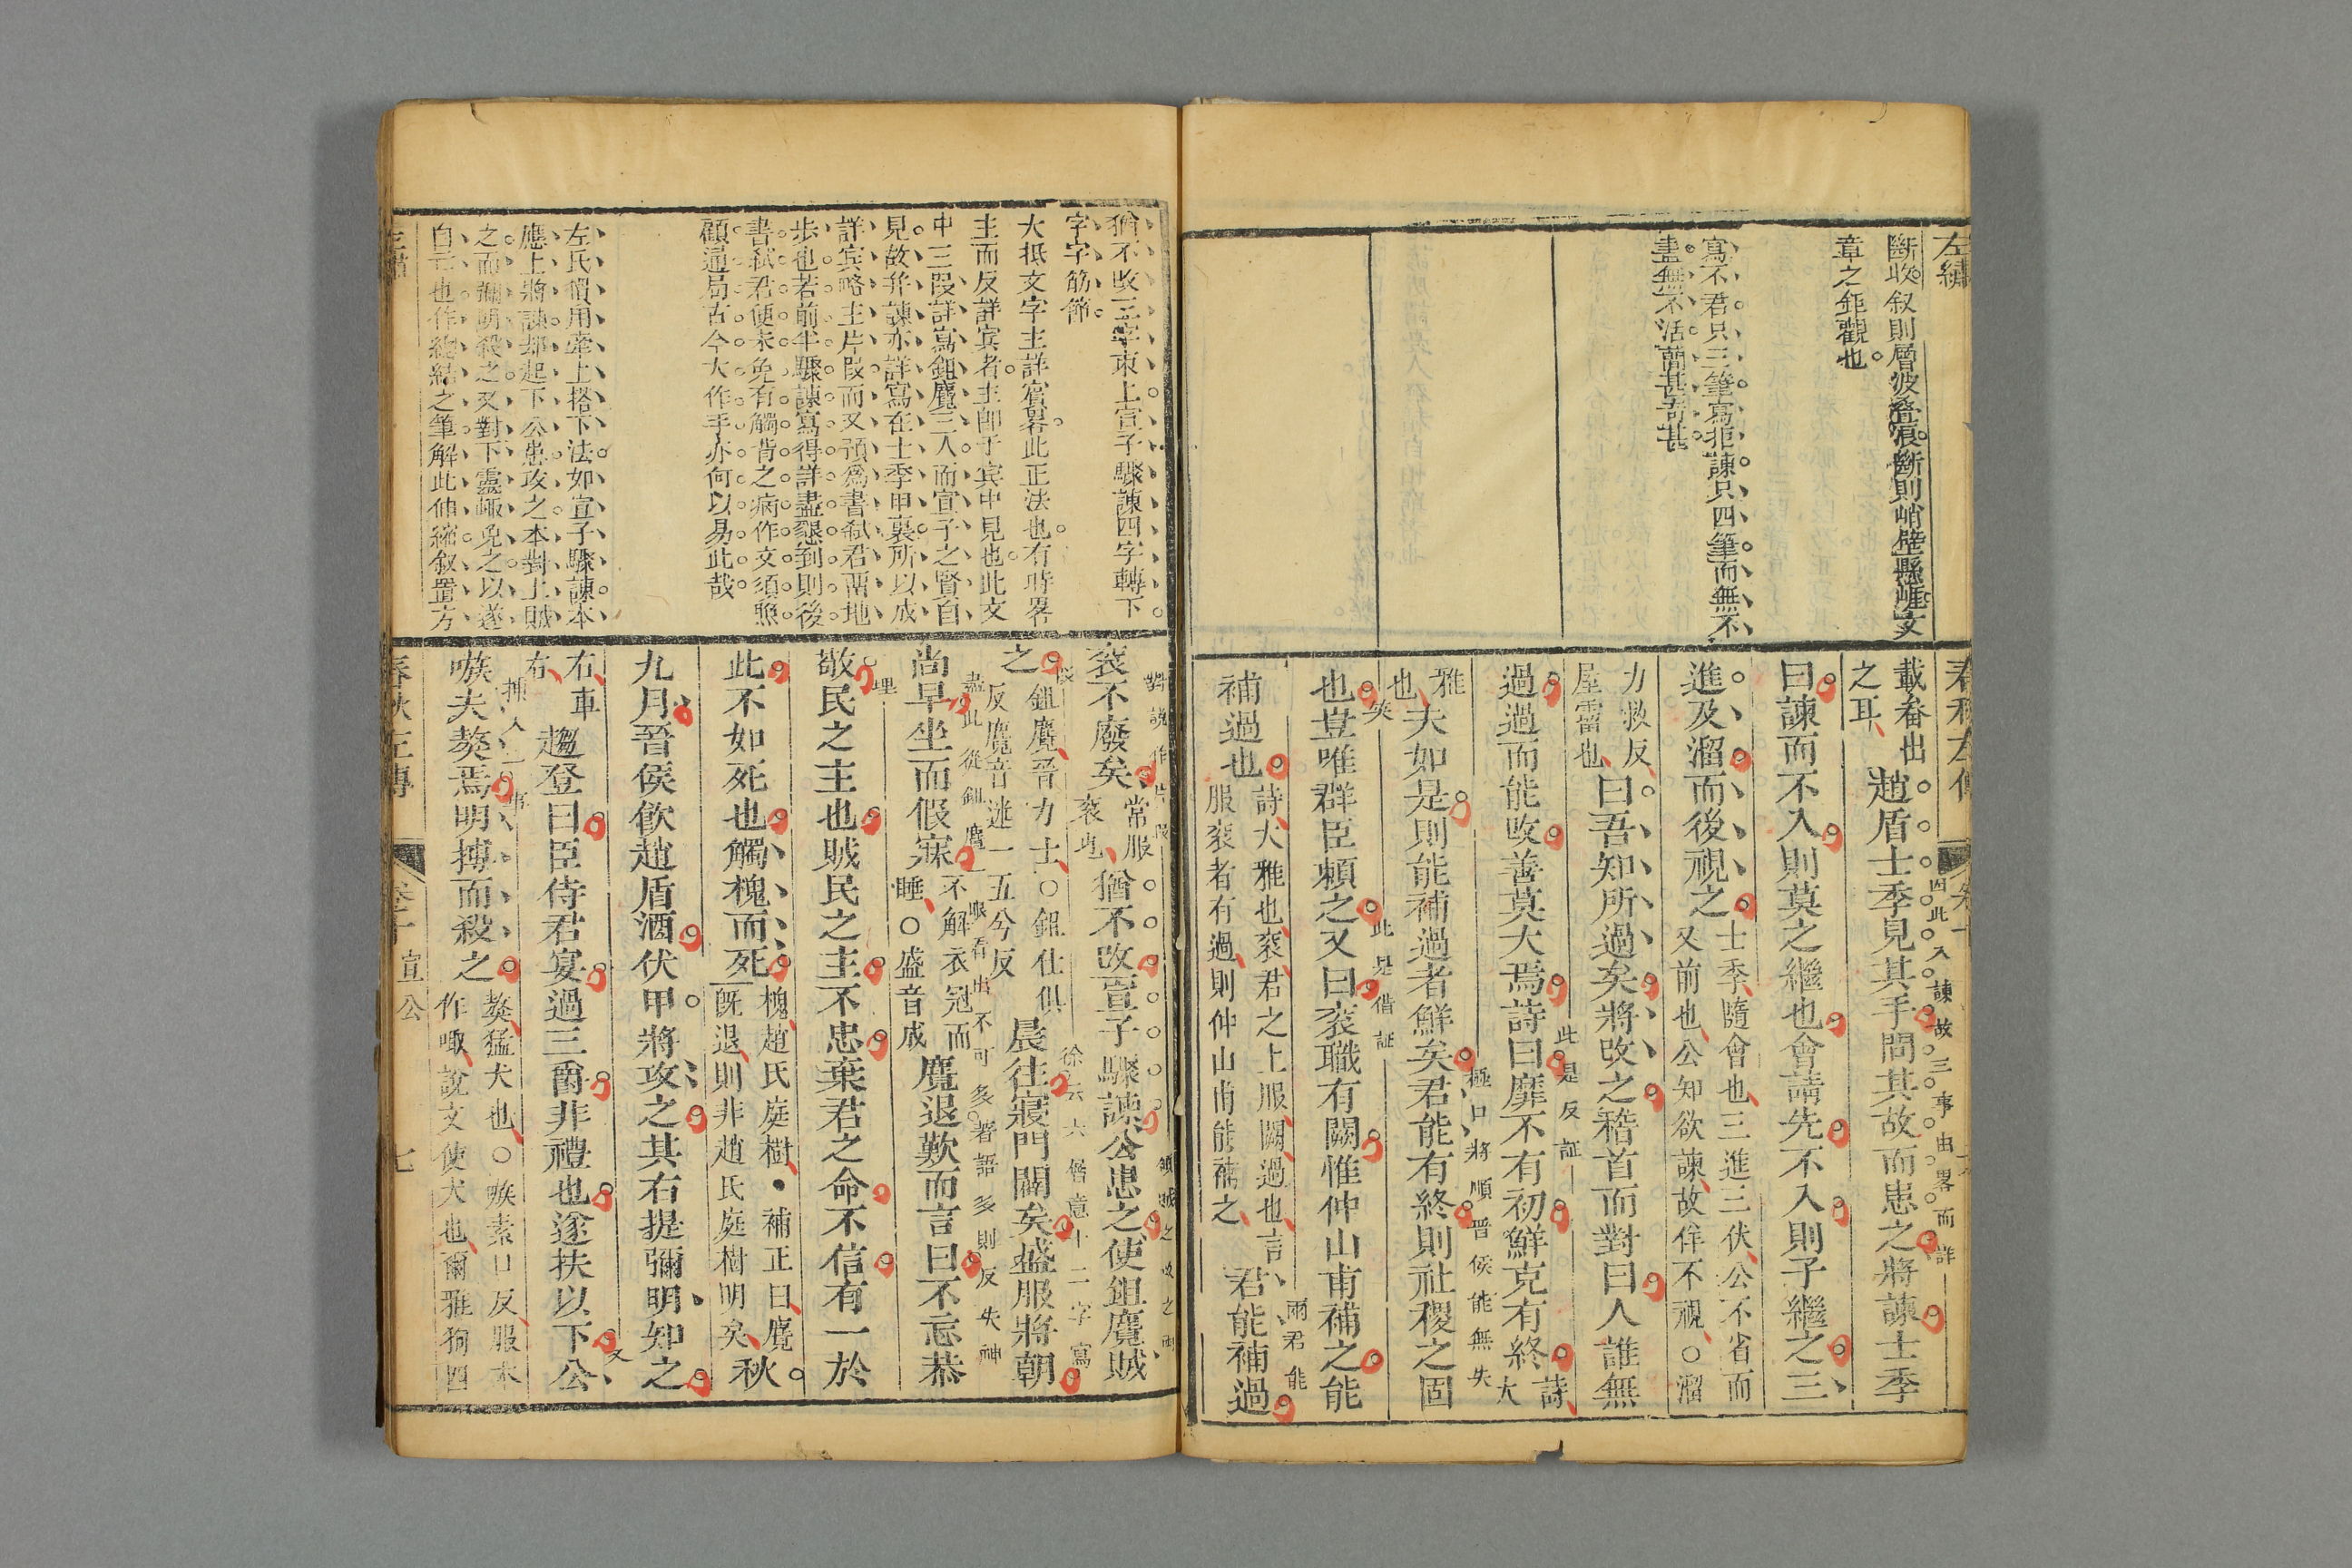 左繡
斷收叙則層波疊浪斷則峭壁懸崖文
章之鉅觀也
寫不君只三筆寫拒諫只四筆而無不
盡無不活蕳甚奇甚
春秋左傳
載畚出
之耳
趙盾士季見其手問其故而患之將諫士季
因此入諫故三事由畧而詳
曰諫而不入則莫之繼也會請先不入則子繼之三
進及溜而後視之
士季隨會也三進三伏公不省而
又前也公知欲諫故佯不視○溜
力救反
屋霤也
曰吾知所過矣將改之稽首而對曰人誰無
此是反証
過過而能改善莫大焉詩曰靡不有初鮮克有終
詩
大
極口將順晋侯能無失
雅
也
夫如是則能補過者鮮矣君能有終則社稷之固
此是借証
也豈唯群臣賴之又曰袞職有闕惟仲山甫補之能
補過也
詩大雅也袞君之上服闕過也言
服袞者有過則仲山甫能補之
君能補過
兩君能
猶不改三字束上宣子驟諫四字轉下
字字筋節
大抵文字主詳賓畧此正法也有時畧
主而反詳賓者主卽于賓中見也此文
中三段詳寫鉏麑三人而宣子之賢自
見故并諫亦詳寫在士季甲裏所以成
詳賓略主片段而又預爲書弑君兩地
步也若前半驟諫寫得詳盡懇到則後
書弑君便未免有觸背之病作文須照
顧通局古今大作手亦何以易此哉
左氏慣用牽上搭下法如宣子驟諫本
應上將諫却起下公患攻之本對上賊
之而彌明殺之又對下靈輒免之以遂
自亡也作總結之筆解此伸縮叙置方
袞不廢矣
常服
袞也
猶不改宣子驟諫公患之使鉏麑賊
對說作片段
之
鉏麑晉力士○鉏仕俱
反麑音迷一五兮反
晨往寢門闢矣盛服將朝
徐云六僭意十二字寫
尚早坐而假寐
不解衣冠而
睡○盛音成
麑退歎而言曰不忘恭
盡此從鉏麑一眼看出不可多著語多則反失神
敬民之主也賊民之主不忠棄君之命不信有一於
此不如死也觸槐而死
槐趙氏庭樹•補正曰麑
旣退則非趙氏庭樹明矣
秋
九月晉侯飮趙盾酒伏甲將攻之其右提彌明知之
右車
右
趨登曰臣侍君宴過三爵非禮也遂扶以下公
嗾夫獒焉明搏而殺之
獒猛犬也○嗾素口反服本
作嗾說文使犬也爾雅狗四
宣公
七